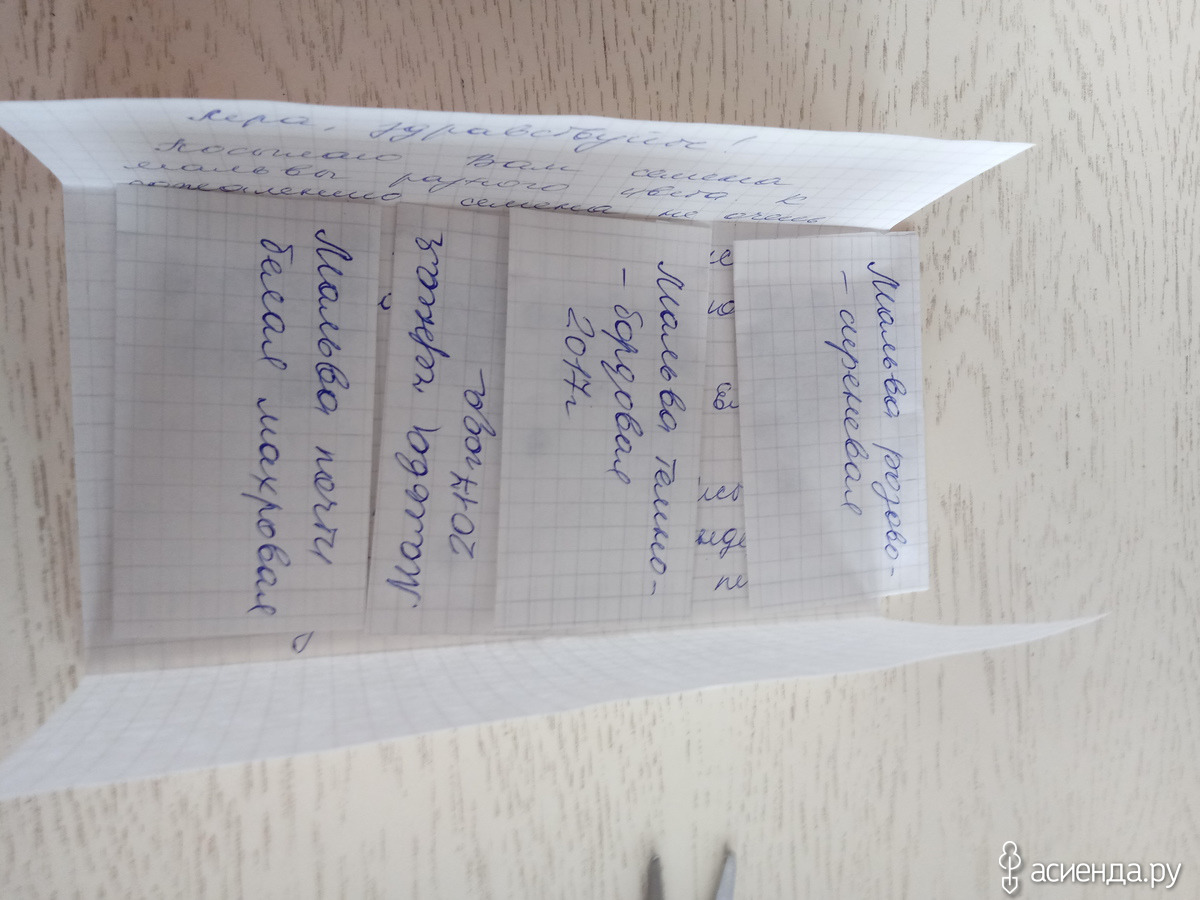 Лера, здравствуйте!
Посылаю Вам семена
мальвы разного цвета к
сожалению семена не очень
Мальва розово-
- сиреневая
Мальва темно-
- бордовая
2017г
2017
Мальва почти
белая махровая
асиенда.ру